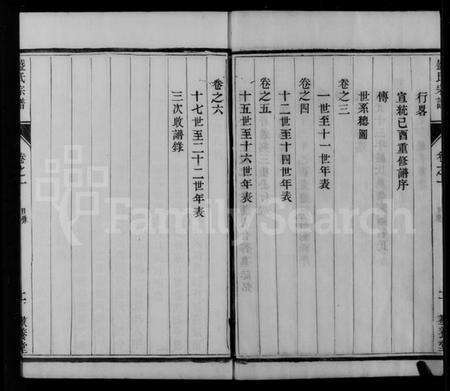 行畧
宣統己酉重修譜序
傳
世系總圖
卷之三
一世至十一世年表
卷之四
十二世至十四世年表
卷之五
十五世至十六世年表
卷之六
十七世至二十二世年表
三次收譜錄
氏宗譜
卷之一
二
FamilySearch